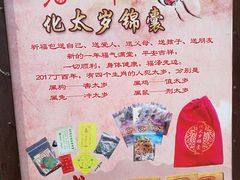 化太岁锦囊
祈福包送自己、送爱人、送父母、送孩子、送朋友
新的一年福气满堂，平安吉祥，
一切顺利，身体健康，福泽无边。
2017丁酉年，有四个生肖的人犯太岁，分别是
属狗——害太岁 属鸡——值太岁
属兔——冲太岁 属鼠——刑太岁